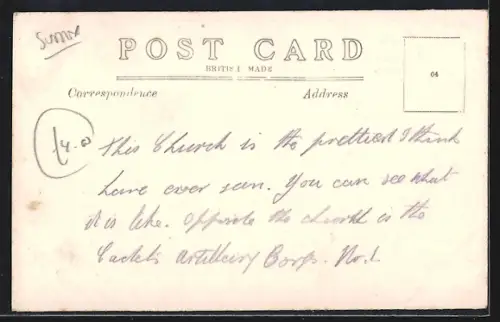 Sussex
POST CARD
BRITISH MADE
Correspondence Address
64
£4.0
This Church is the prettiest I think
have ever seen. You can see what
it is like. Opposite the church is the
Cadets Artillery Corps. No.1